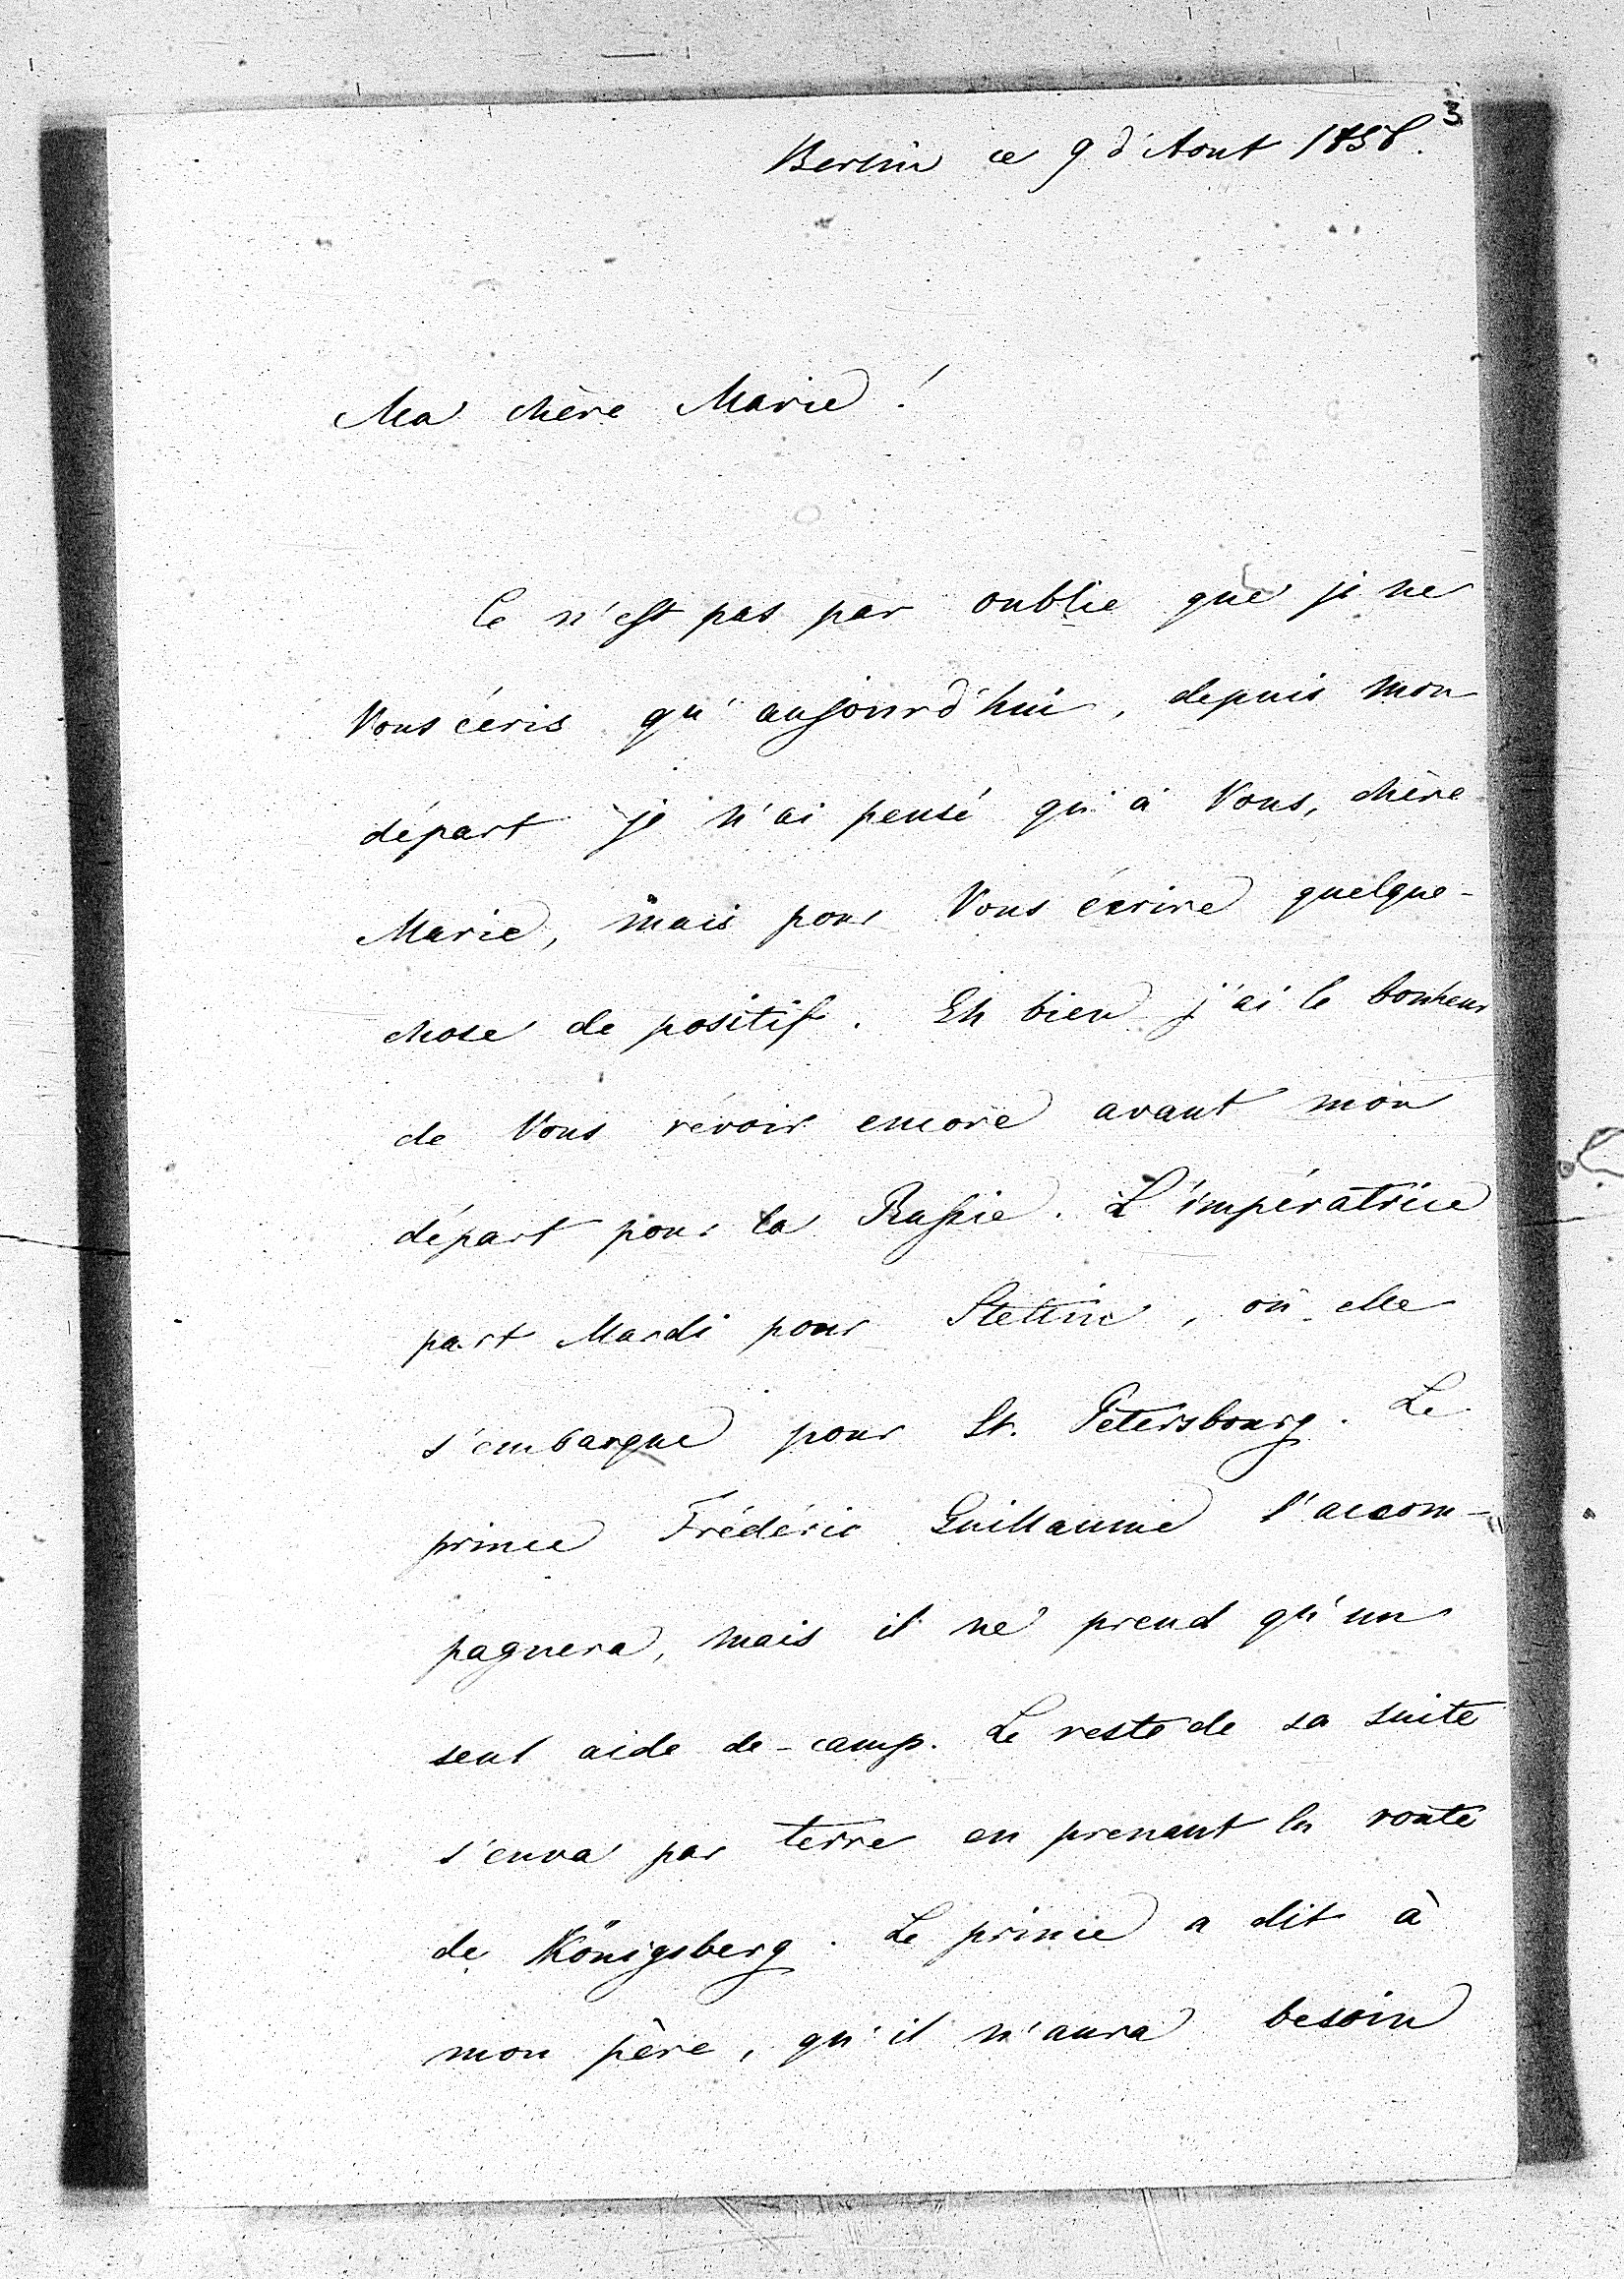 3
Berlin ce 9 d'Aout 1856.
Ma chère Marie!
Ce n'est pas par oublie que je ne
Vous écris qu'aujourd'hui, depuis mon
départ je n'ai pensé qu'à Vous, chère
Marie, mais pour Vous écrire quelque-
chose de positif. Eh bien j'ai le bonheur
de Vous révoir encore avant mon
départ pour la Russie. L'impératrice
part Mardi pour Stettin, où elle
s'embarque pour St. Petersbourg. Le
prince Frédéric Guillaume l'accom-
pagnera, mais il ne prend qu'un
seul aide de-camp. Le reste de sa suite
s'enva par terre en prenant la route
de Königsberg. Le prince a dit à
mon père, qu'il n'aura besoin